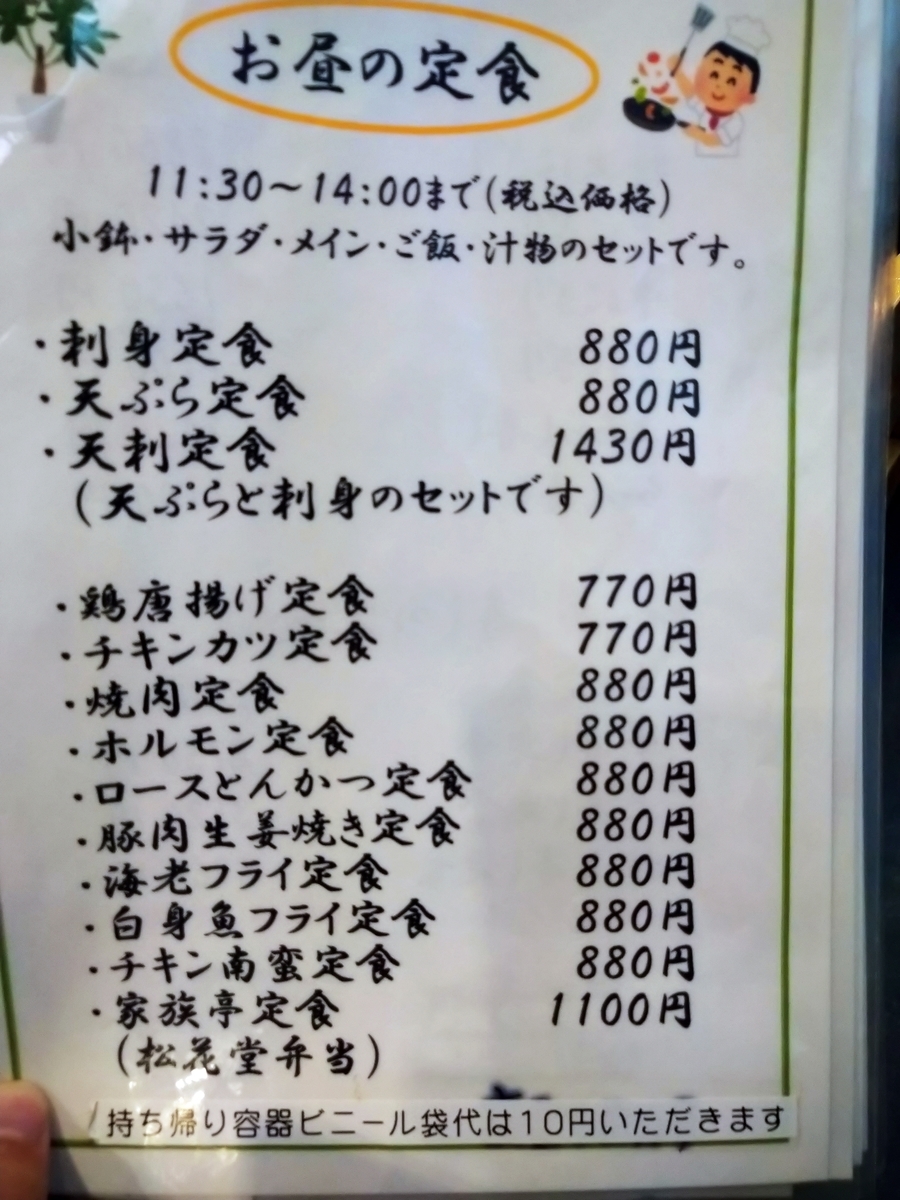 お昼の定食
11:30～14:00まで(税込価格)
小鉢・サラダ・メイン・ご飯・汁物のセットです。
・刺身定食 880円
・天ぷら定食 880円
・天刺定食 1430円
(天ぷらと刺身のセットです)
・鶏唐揚げ定食 770円
・チキンカツ定食 770円
・焼肉定食 880円
・ホルモン定食 880円
・ロースとんかつ定食 880円
・豚肉生姜焼き定食 880円
・海老フライ定食 880円
・白身魚フライ定食 880円
・チキン南蛮定食 880円
・家族亭定食 1100円
(松花堂弁当)
持ち帰り容器ビニール袋代は10円いただきます